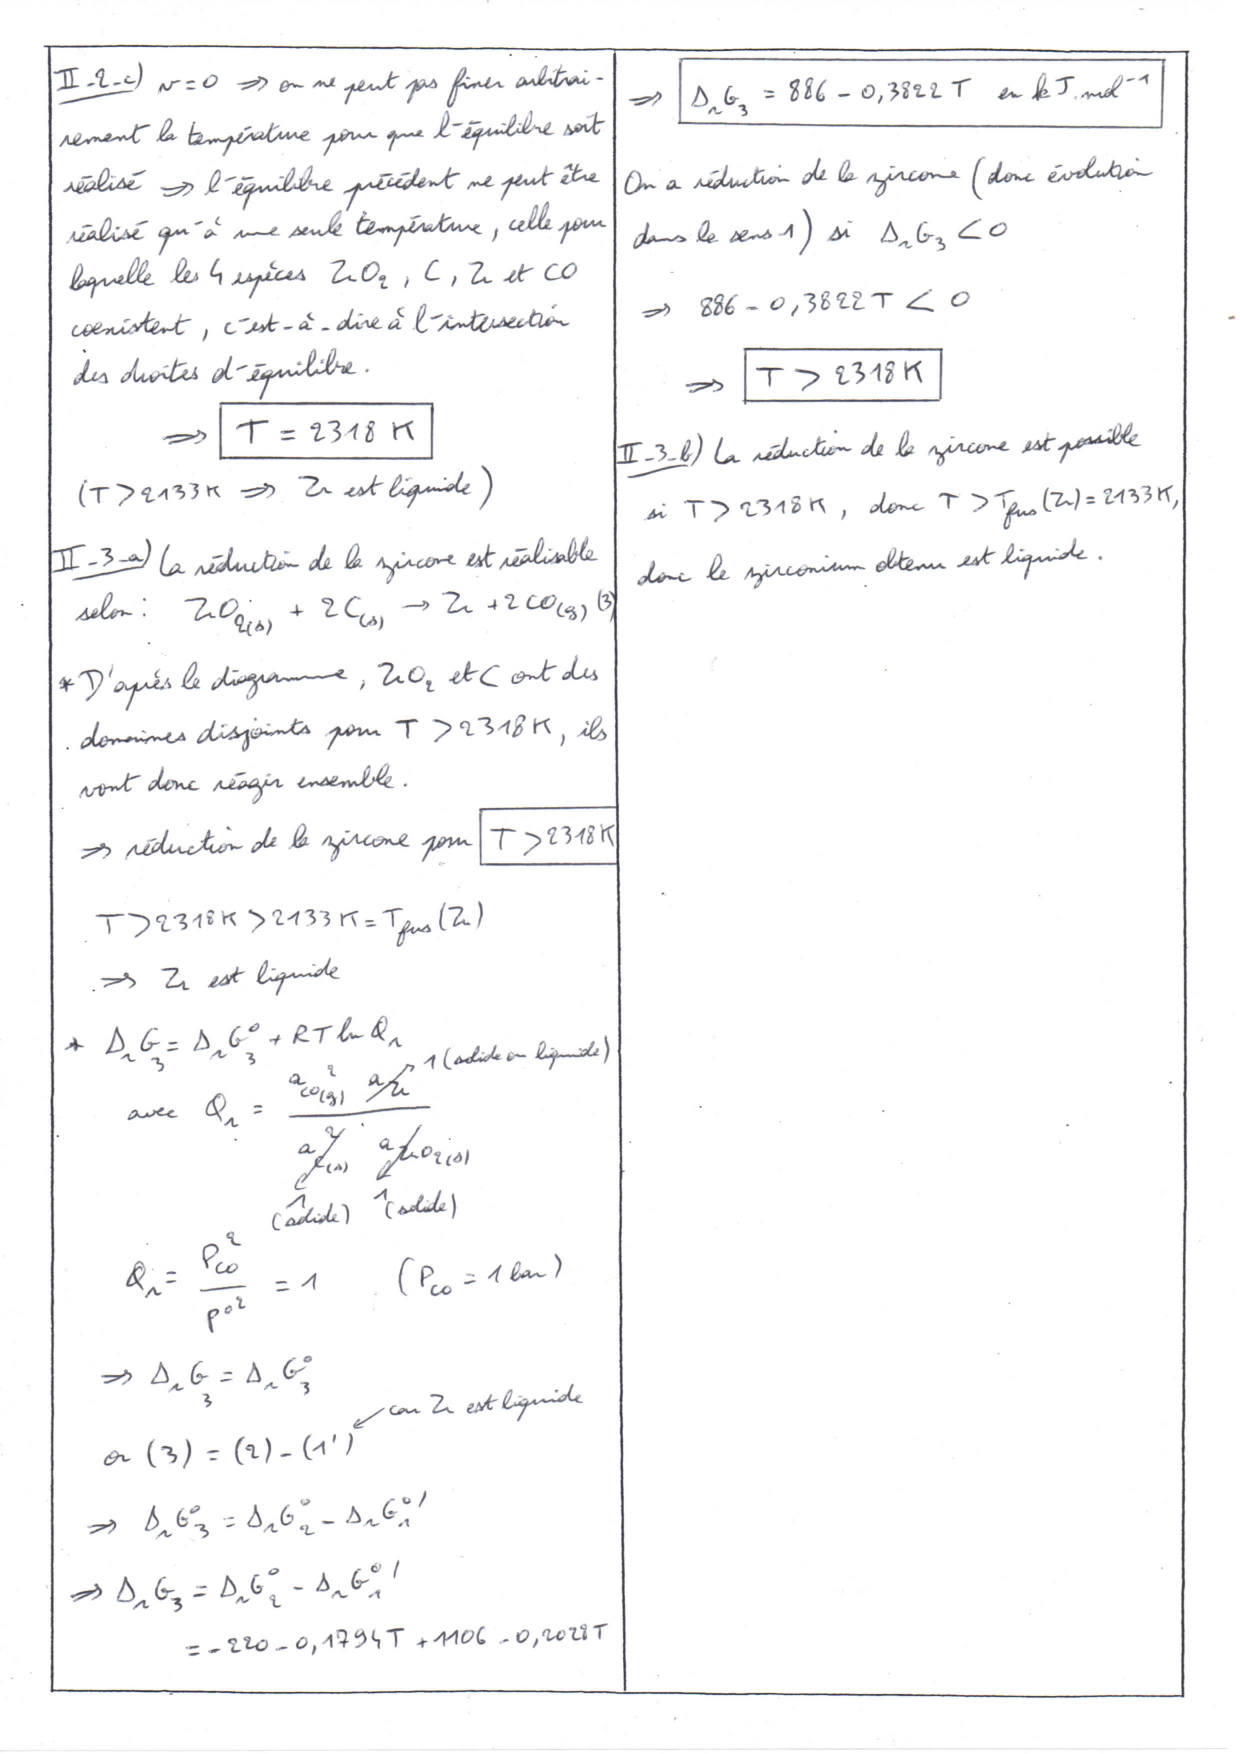 II-2-c) v=0 ⇒ on ne peut pas fixer arbitrai-
rement la température pour que l'équilibre soit
réalisé ⇒ l'équilibre précédent ne peut être
réalisé qu'à une seule température, celle pour
laquelle les 4 espèces ZrO₂, C, Zr et CO
coexistent, c'est-à-dire à l'intersection
des droites d'équilibre.
⇒ T = 2318 K
(T > 2133 K ⇒ Zr est liquide)
II-3-a) La réduction de la zircone est réalisable
selon : ZrO₂(s) + 2C(s) → Zr + 2CO(g) (3)
* D'après le diagramme, ZrO₂ et C ont des
domaines disjoints pour T > 2318 K, ils
vont donc réagir ensemble.
⇒ réduction de la zircone pour T > 2318 K
T > 2318 K > 2133 K = Tfus (Zr)
⇒ Zr est liquide
* ΔrG₃ = ΔrG₃° + RT ln Qr
avec Qr = a²CO(g) aZr / a²C(s) aZrO₂(s)
1 (solide ou liquide)
1 1
(solide) (solide)
Qr = PCO² / P°² = 1 (PCO = 1 bar)
⇒ ΔrG₃ = ΔrG₃°
car Zr est liquide
or (3) = (2) - (1')
⇒ ΔrG₃° = ΔrG₂° - ΔrG₁°'
⇒ ΔrG₃ = ΔrG₂° - ΔrG₁°'
= -220 - 0,1794T + 1106 - 0,2028T
⇒ ΔrG₃ = 886 - 0,3822 T en kJ.mol⁻¹
On a réduction de la zircone (donc évolution
dans le sens 1) si ΔrG₃ < 0
⇒ 886 - 0,3822 T < 0
⇒ T > 2318 K
II-3-b) La réduction de la zircone est possible
si T > 2318 K, donc T > Tfus (Zr) = 2133 K,
donc le zirconium obtenu est liquide.